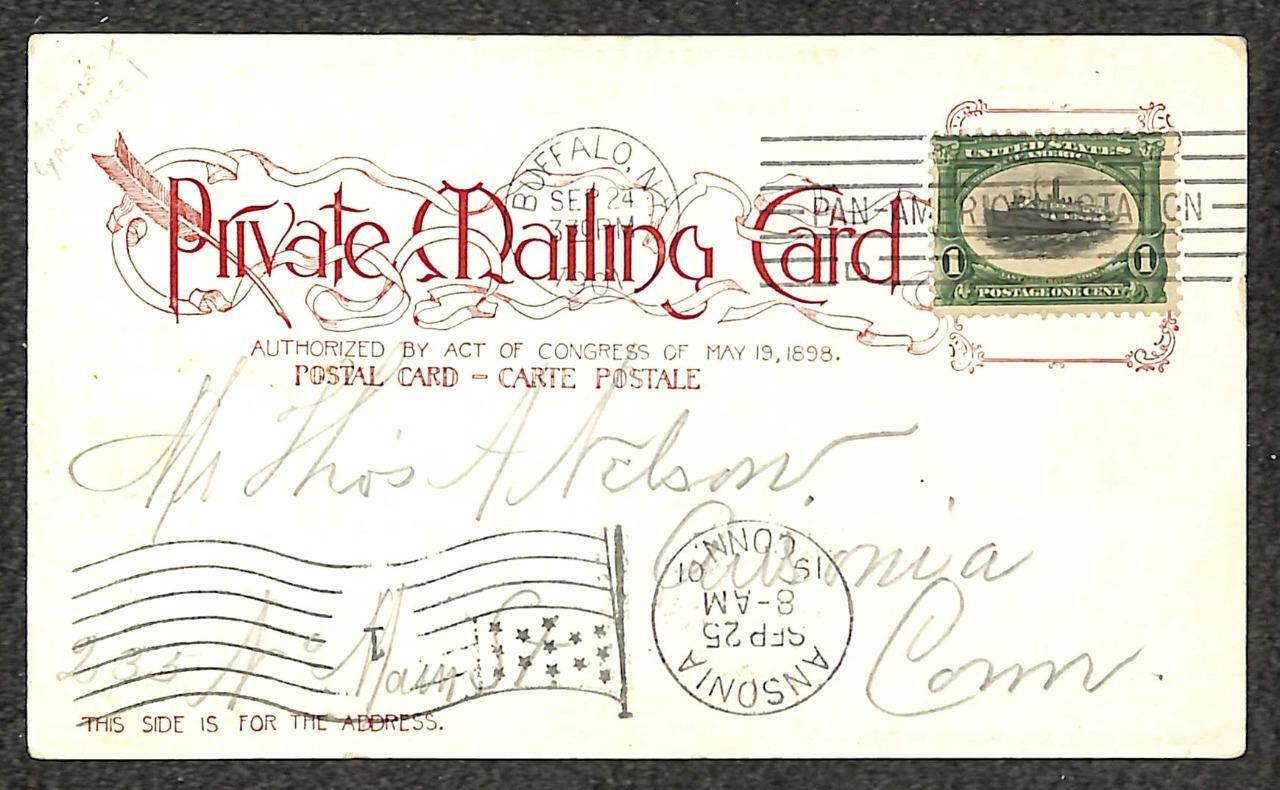 BUFFALO, N.Y.
SEP 24
330 PM
1901
PAN-AMERICAN STATION
D
UNITED STATES
OF AMERICA
1 1
POSTAGE ONE CENT
Private Mailing Card
AUTHORIZED BY ACT OF CONGRESS OF MAY 19, 1898.
POSTAL CARD - CARTE POSTALE
Mr Thos A Nelson.
Ansonia
235 No Main St
Conn.
1
ANSONIA
SEP 25
8-AM
1901
CONN.
THIS SIDE IS FOR THE ADDRESS.